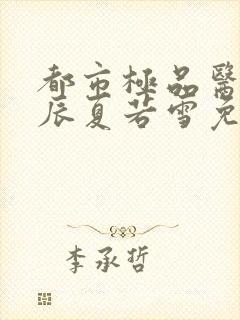 都市極品醫
辰夏若雪免
李承哲